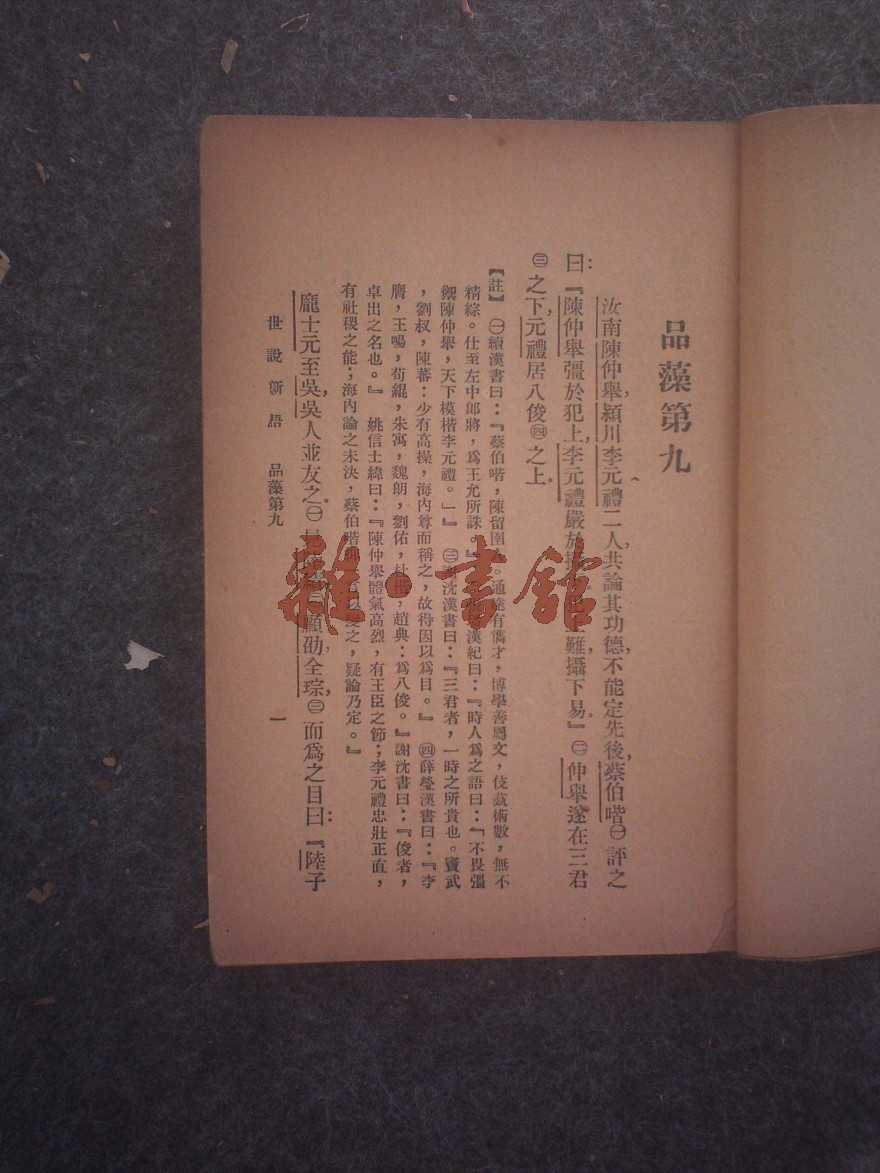 品藻第九
汝南陳仲舉，潁川李元禮二人，共論其功德，不能定先後，蔡伯喈㊀評之
曰：『陳仲舉彊於犯上，李元禮嚴於難攝下易。』㊁仲舉遂在三君
㊂之下，元禮居八俊㊃之上。
【註】㊀續漢書曰：『蔡伯喈，陳留圉。通達有儁才，博學善屬文，伎蓺術數，無不
精綜。仕至左中郎將，爲王允所誅。漢紀曰：『時人爲之語曰：「不畏彊
禦陳仲舉，天下模楷李元禮。」』㊂沈漢書曰：『三君者，一時之所貴也。竇武
，劉叔，陳蕃：少有高操，海內尊而稱之，故得因以爲目。』㊃薛瑩漢書曰：『李
膺，王暢，荀緄，朱寓，魏朗，劉佑，杜楷，趙典：爲八俊。』謝沈書曰：『俊者，
卓出之名也。』姚信士緯曰：『陳仲舉體氣高烈，有王臣之節；李元禮忠壯正直，
有社稷之能；海內論之未決，蔡伯喈之，疑論乃定。』
龐士元至吳，吳人並友之。㊀見顧劭，全琮，㊂而爲之目曰：『陸子
世說新語 品藻第九 一
雜·書館